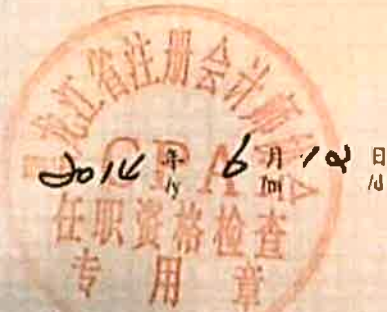 黑龙江省注册会计师协会
CPA
2014 年 6 月 12 日
/y /m /d
任职资格检查
专用章